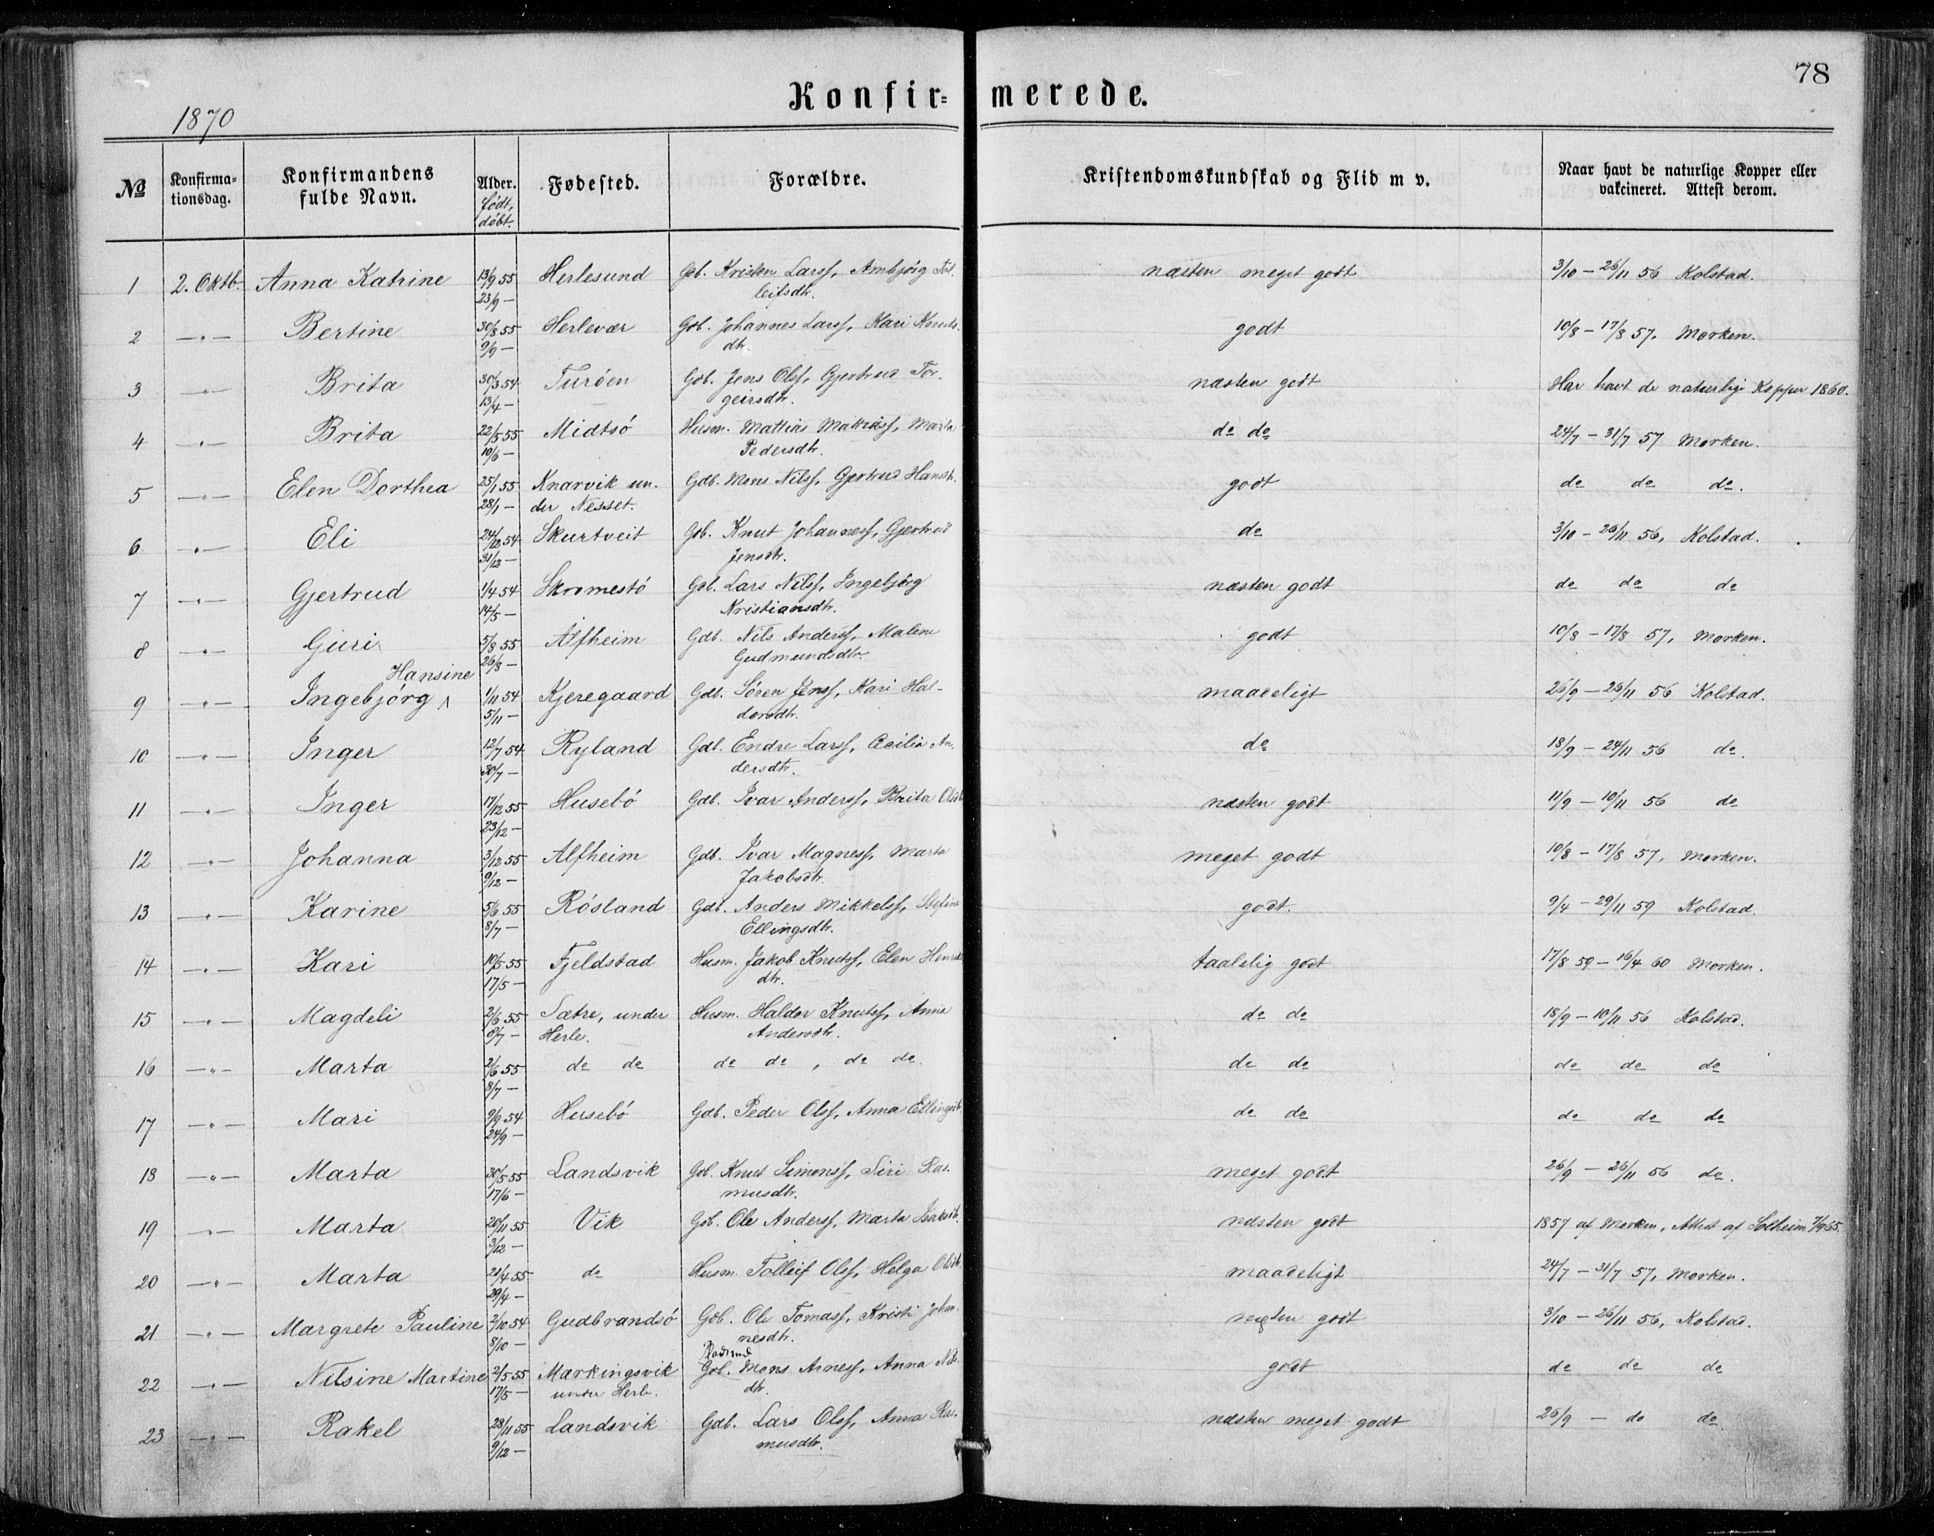 78
Konfirmerede.
1870
№ Konfirmationsdag. Konfirmandens fulde Navn. Alder. født, døbt. Fødested. Forældre. Kristendomskundskab og Flid m v. Naar havt de naturlige Kopper eller vakcineret. Attest derom.
1 2. Oktb. Anna Katrine 13/9 55 Herlesund Gdb. Kristen Larss, Ambjørg Tol- næsten meget godt 3/10 – 26/11 56 Kolstad.
23/9 — leifsdtr.
2 —〃— Bertine 30/8 55 Herlevær Gdb. Johannes Larss, Kari Knuts- godt 10/8 – 17/8 57, Morken.
9/9 — dtr.
3 —〃— Brita 30/3 54 Turøen Gdb. Jens Olss, Gjertrud Tor- næsten godt Har havt de naturlige Kopper 1860.
13/4 — geirsdtr.
4 —〃— Brita 22/5 55 Midtsø Husm. Mattias Mattiass, Marta do do 24/7 – 31/7 57 Morken.
10/6 — Pedersdtr.
5 —〃— Elen Dorthea 25/1 55 Knarvik un- Gdb. Mons Nilss, Gjertrud Hansdtr. godt do do do.
28/1 — der Nesset.
6 —〃— Eli 24/12 54 Skurtveit Gdb. Knut Johanness, Gjertrud do 3/10 – 26/11 56, Kolstad.
31/12 — Jensdtr.
7 —〃— Gjertrud 1/4 54 Skromestø Gdb. Lars Nilss, Ingebjørg næsten godt do do do
14/5 — Kristiansdtr.
8 —〃— Guri 5/8 55 Alfheim Gdb. Nils Anderss, Malene godt 10/8 – 17/8 57, Morken.
26/8 — Gudmundsdtr.
Hansine
9 —〃— Ingebjørg ʌ 1/11 54 Kjeregaard Gdb. Søren Jenss, Kari Hal- maadeligt 26/9 – 26/11 56 Kolstad.
5/11 — dorsdtr.
10 —〃— Inger 12/7 54 Ryland Gdb. Endre Larss, Cecilia An- do 18/9 – 24/11 56 do.
30/7 — dersdtr.
11 —〃— Inger 17/12 55 Husebø Gdb. Ivar Anderss, Brita Olsdtr næsten godt 11/9 – 10/11 56 do
23/12 —
12 —〃— Johanna 3/12 55 Alfheim Gdb. Ivar Magness, Marta meget godt 10/8 – 17/8 57, Morken.
9/12 — Jakobsdtr.
13 —〃— Karine 5/6 55 Røsland Gdb. Anders Mikkelss, Stefine godt. 9/4 – 29/11 59 Kolstad.
8/7 — Ellingsdtr.
14 —〃— Kari 10/5 55 Fjeldstad Husm. Jakob Knutss, Elen Henriks- taalelig godt 17/8 59 – 16/4 60 Morken.
17/5 — dtr.
15 —〃— Magdeli 2/6 55 Sætre, under Husm. Haldor Knutss, Anna do do 18/9 – 10/11 56 Kolstad.
8/7 — Herle. Andersdtr.
16 —〃— Marta 2/6 55 do do do do, do do. do do do do do
8/7 —
17 —〃— Mari 9/9 54 Husebø Gdb. Peder Olss, Anna Ellingsdtr. do do do do do
24/9 —
18 —〃— Marta 30/5 55 Landsvik Gdb. Knut Simonss, Siri Ras- meget godt 26/9 – 26/11 56 do.
17/6 — musdtr.
19 —〃— Marta 20/11 55 Vik Gdb. Ole Anderss, Marta næsten godt 1857 af Morken, Attest af Solheim 7/9 65.
3/12 —
20 —〃— Marta 21/4 55 do Husm. Tolleif Olss, Helga Olsdtr. maadeligt 24/7 – 31/7 57, Morken.
29/4 —
21 —〃— Margrete Pauline 2/10 54 Gudbrandsø Gdb. Ole Tomass, Kristi Johan- næsten godt 3/10 – 26/11 56, Kolstad.
8/10 — nesdtr.
Pladsmd
22 —〃— Nilsine Martine 2/5 55 Markingsvik Gdb. Mons Arness, Anna Nils- godt do do do
17/5 — under Herle. dtr.
23 —〃— Rakel 28/11 55 Landsvik Gdb. Lars Olss, Anna Ra- næsten meget godt 26/9 – do do
9/12 — musdtr.